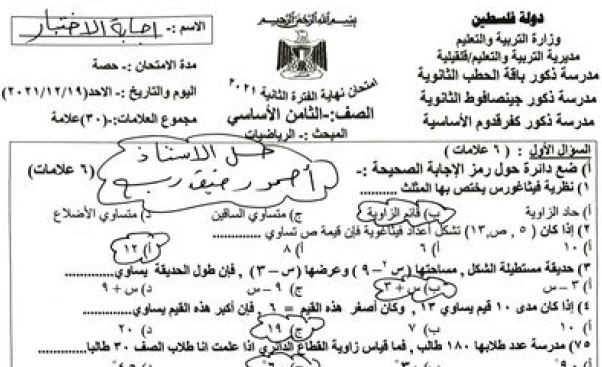 دولة فلسطين
وزارة التربية والتعليم
مديرية التربية والتعليم/قلقيلية
مدرسة ذكور باقة الحطب الثانوية
مدرسة ذكور جينصافوط الثانوية
مدرسة ذكور كفرقدوم الأساسية
بسم الله الرحمن الرحيم
امتحان نهاية الفترة الثانية ٢٠٢١
الصف:-الثامن الأساسي
المبحث:- الرياضيات
الاسم :- إجابة الاختبار
مدة الامتحان:- حصة
اليوم والتاريخ:- الاحد(٢٠٢١/١٢/١٩)
مجموع العلامات:-(٣٠)علامة
السؤال الأول: (٦ علامات)
حل الاستاذ
أ) ضع دائرة حول رمز الإجابة الصحيحة:- (٦ علامات)
١) نظرية فيثاغورس يختص بها المثلث
أ) حاد الزاوية ب) قائم الزاوية ج) متساوي الساقين د) متساوي الأضلاع
٢) اذا كان (٥ , ص , ١٣) تشكل أعداد فيثاغورية فإن قيمة ص تساوي ............
أ) ١٠ أ) ٦ أ) ٨ أ) ١٢
٣) حديقة مستطيلة الشكل , مساحتها (س٢ – ٩) وعرضها (س – ٣) , فإن طول الحديقة يساوي........
أ) ٣ – س ب) س + ٣ ج) ٩ – س د) س + ٩
٤) إذا كان مدى ١٠ قيم يساوي ١٣ , وكان أصغر هذه القيم = ٦ , فإن أكبر هذه القيم يساوي...............
أ) ١٠ ب) ٧ ج) ١٩ د) ٢٠
٥) مدرسة عدد طلابها ١٨٠ طالب , فما قياس زاوية القطاع الدائري إذا علمت انا طلاب الصف ٣٠ طالبا.........